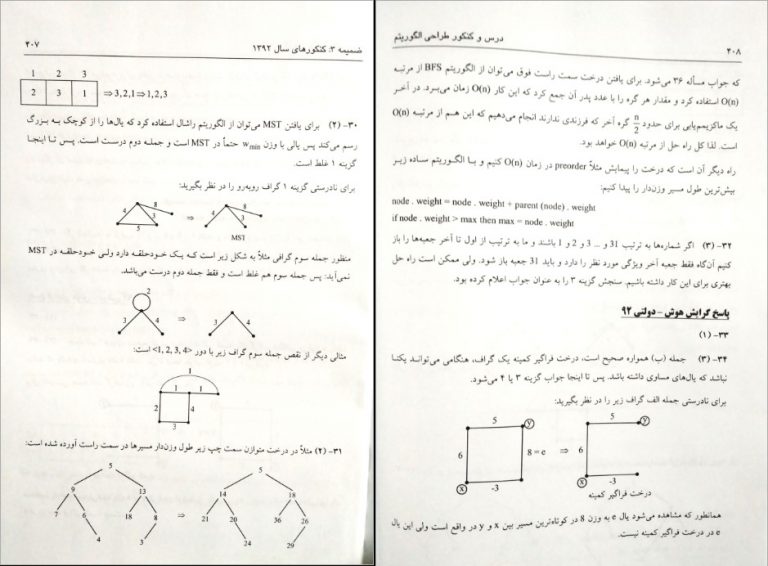 ضمیمه ۳: کنکورهای سال ۱۳۹۲
۴۰۷
1 2 3
2 3 1 ⇒3,2,1⇒1,2,3
۳۰- (۲) برای یافتن MST می‌توان از الگوریتم راشال استفاده کرد که یال‌ها را از کوچک به بزرگ
رسم می‌کند پس یالی با وزن wmin حتماً در MST است و جمله دوم درست است. پس تا اینجا
گزینه ۱ غلط است.
برای نادرستی گزینه ۱ گراف روبه‌رو را در نظر بگیرید:
4 8 3 5 ⇒ 4 8 3
MST
منظور جمله سوم گرافی مثلاً به شکل زیر است که یک خودحلقه دارد ولی خودحلقه در MST
نمی‌آید: پس جمله سوم هم غلط است و فقط جمله دوم درست می‌باشد.
2
3 4 ⇒ 3 4
مثالی دیگر از نقص جمله سوم گراف زیر با دور <1, 2, 3, 4> است:
1
1 1
2 4
3
۳۱- (۲) مثلاً در درخت متوازن سمت چپ زیر طول وزن‌دار مسیرها در سمت راست آورده شده است:
5 5
9 13 14 18
7 6 18 8 ⇒ 21 20 36 26
4 3 24 29
درس و کنکور طراحی الگوریتم
۴۰۸
که جواب مسأله ۳۶ می‌شود. برای یافتن درخت سمت راست فوق می‌توان از الگوریتم BFS از مرتبه
O(n) استفاده کرد و مقدار هر گره را با عدد پدر آن جمع کرد که این کار O(n) زمان می‌برد. در آخر
یک ماکزیمم‌یابی برای حدود n/2 گره آخر که فرزندی ندارند انجام می‌دهیم که این هم از مرتبه O(n)
است. لذا کل راه حل از مرتبه O(n) خواهد بود.
راه دیگر آن است که درخت را پیمایش مثلاً preorder در زمان O(n) کنیم و با الگوریتم ساده زیر
بیش‌ترین طول مسیر وزن‌دار را پیدا کنیم:
node . weight = node . weight + parent (node) . weight
if node . weight > max then max = node . weight
۳۲- (۳) اگر شماره‌ها به ترتیب 31 و ... 3 و 2 و 1 باشند و ما به ترتیب از اول تا آخر جعبه‌ها را باز
کنیم آن‌گاه فقط جعبه آخر ویژگی مورد نظر را دارد و باید 31 جعبه باز شود. ولی ممکن است راه حل
بهتری برای این کار داشته باشیم. سنجش گزینه ۳ را به عنوان جواب اعلام کرده بود.
پاسخ گرایش هوش – دولتی ۹۲
۳۳- (۱)
۳۴- (۳) جمله (ب) همواره صحیح است، درخت فراگیر کمینه یک گراف، هنگامی می‌تواند یکتا
نباشد که یال‌های مساوی داشته باشد. پس تا اینجا جواب گزینه ۳ یا ۴ می‌شود.
برای نادرستی جمله الف گراف زیر را در نظر بگیرید:
5 y 5 y
6 8 = e ⇒ 6
x -3 x -3
درخت فراگیر کمینه
همانطور که مشاهده می‌شود یال e به وزن 8 در کوتاه‌ترین مسیر بین x و y در واقع است ولی این یال
e در درخت فراگیر کمینه نیست.